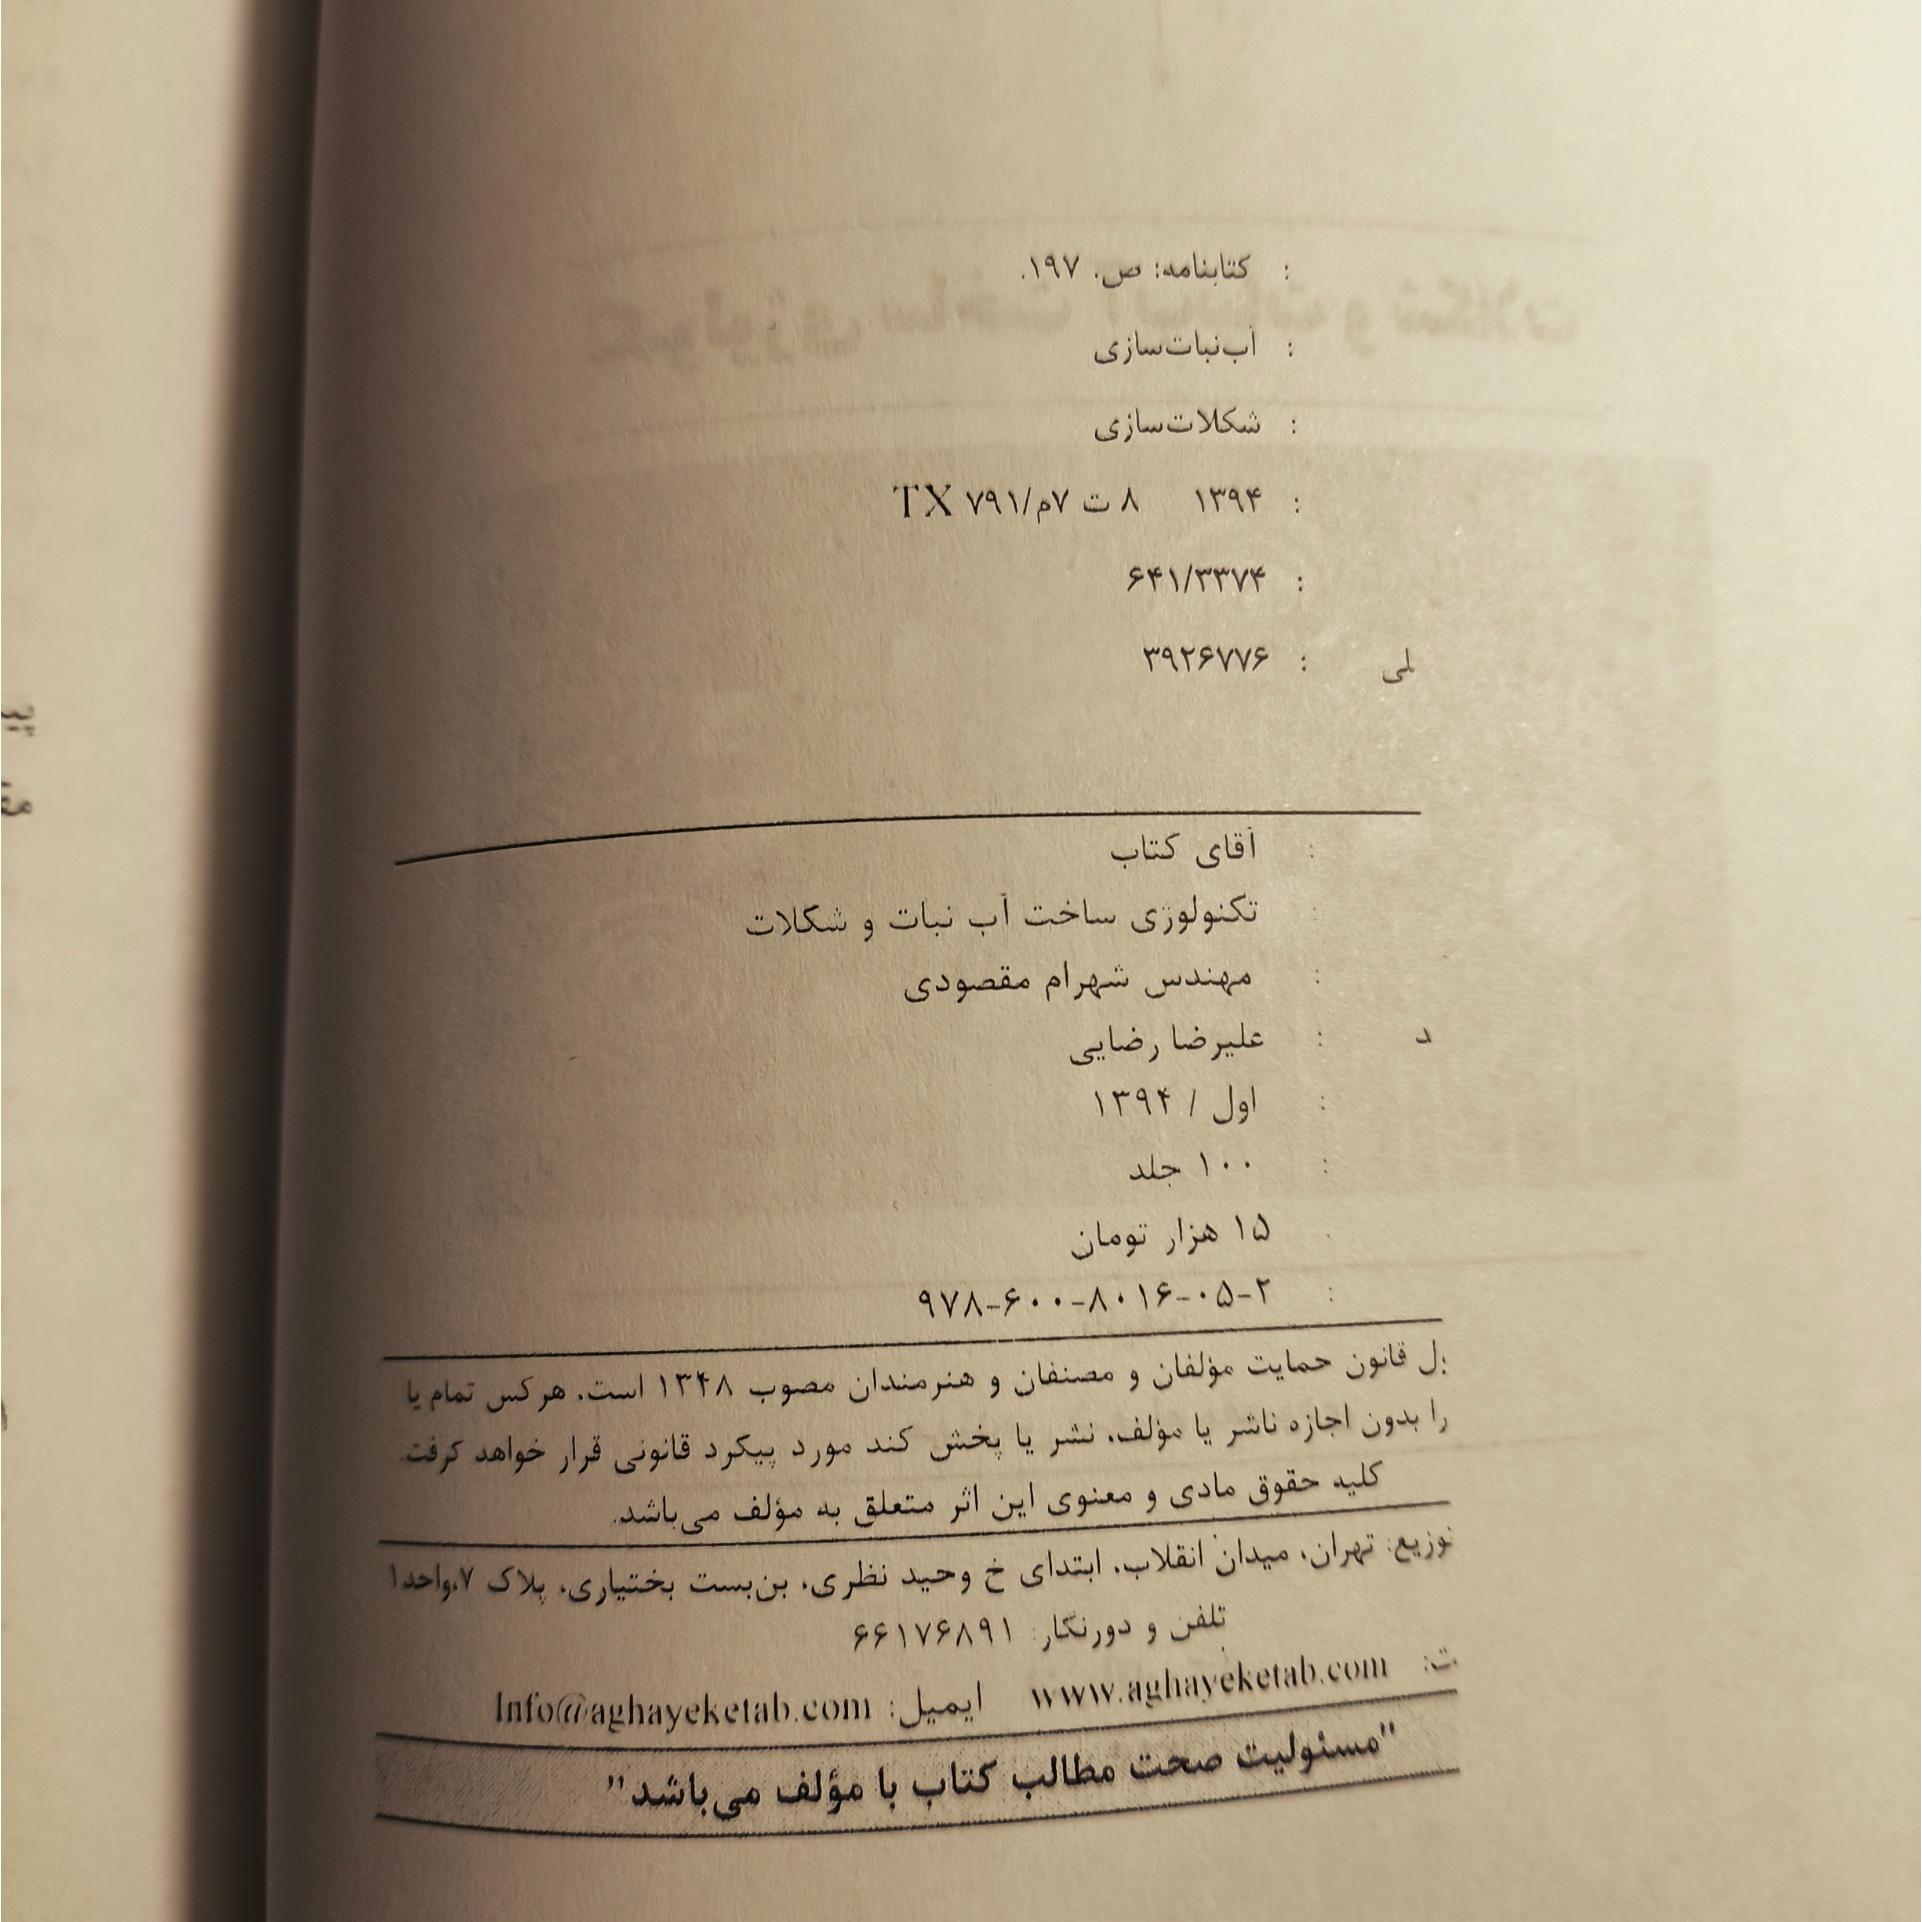 : کتابنامه: ص. ۱۹۷.
: آب‌نبات‌سازی
: شکلات‌سازی
: ۱۳۹۴ ۸ ت ۷م/۷۹۱ TX
: ۶۴۱/۳۳۷۴
لی : ۳۹۲۶۷۷۶
: آقای کتاب
: تکنولوژی ساخت آب نبات و شکلات
: مهندس شهرام مقصودی
د : علیرضا رضایی
: اول / ۱۳۹۴
: ۱۰۰ جلد
: ۱۵ هزار تومان
: ۹۷۸-۶۰۰-۸۰۱۶-۰۵-۲
قانون حمایت مؤلفان و مصنفان و هنرمندان مصوب ۱۳۴۸ است. هرکس تمام یا
را بدون اجازه ناشر یا مؤلف، نشر یا پخش کند مورد پیگرد قانونی قرار خواهد گرفت.
کلیه حقوق مادی و معنوی این اثر متعلق به مؤلف می‌باشد.
توزیع: تهران، میدان انقلاب، ابتدای خ وحید نظری، بن‌بست بختیاری، پلاک ۷،واحد۱
تلفن و دورنگار: ۶۶۱۷۶۸۹۱
ت: www.aghayeketab.com ایمیل: Info@aghayeketab.com
"مسئولیت صحت مطالب کتاب با مؤلف می‌باشد"